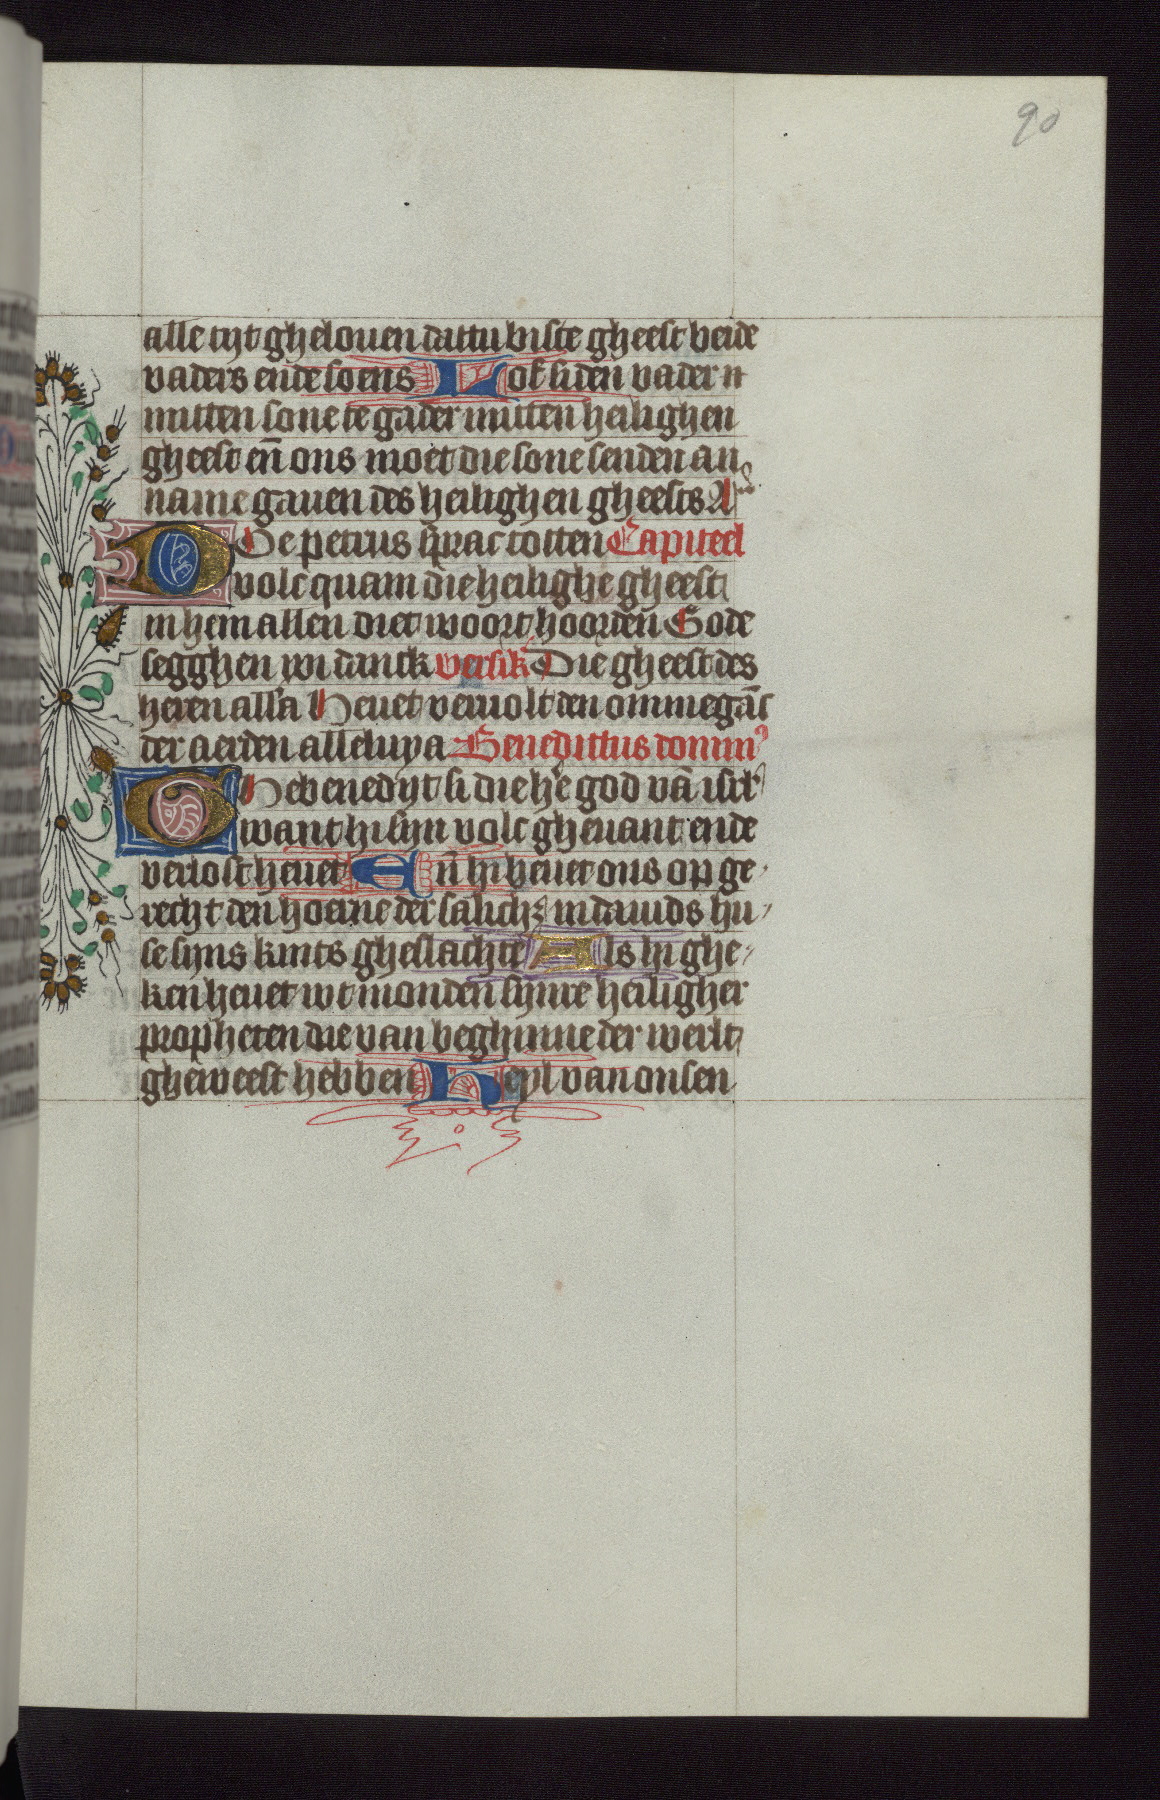 90
alle tijt ghelouen dattu biste gheest beide
vaders ende soens Lof si den vader n̄
mitten sone te gader mitten heilighen
gheest eñ ons moet die sone senden an
name gauen des heilighen gheests A
Doe petrus sprac totten Capiteel
volc quam die heilighe gheest
in hem allen diet woort hoorden Gode
segghen wi danck versik Die gheest des
heren all'a Heuet veruolt den ommegāc
der aerden alleluya Benedictus domin9
Ghebenedijt si die he god vā isrl
want hi sijn volc gheuant ende
verlost heuet Eñ hi heuet ons op ge
recht den hoerne der salich3 in dauids hu
se sijns kints gheslachte Als hi ghe
ken heuet wt monden sijnre heiligher
propheten die van beghinne der werlt
gheweest hebben Heyl van onsen